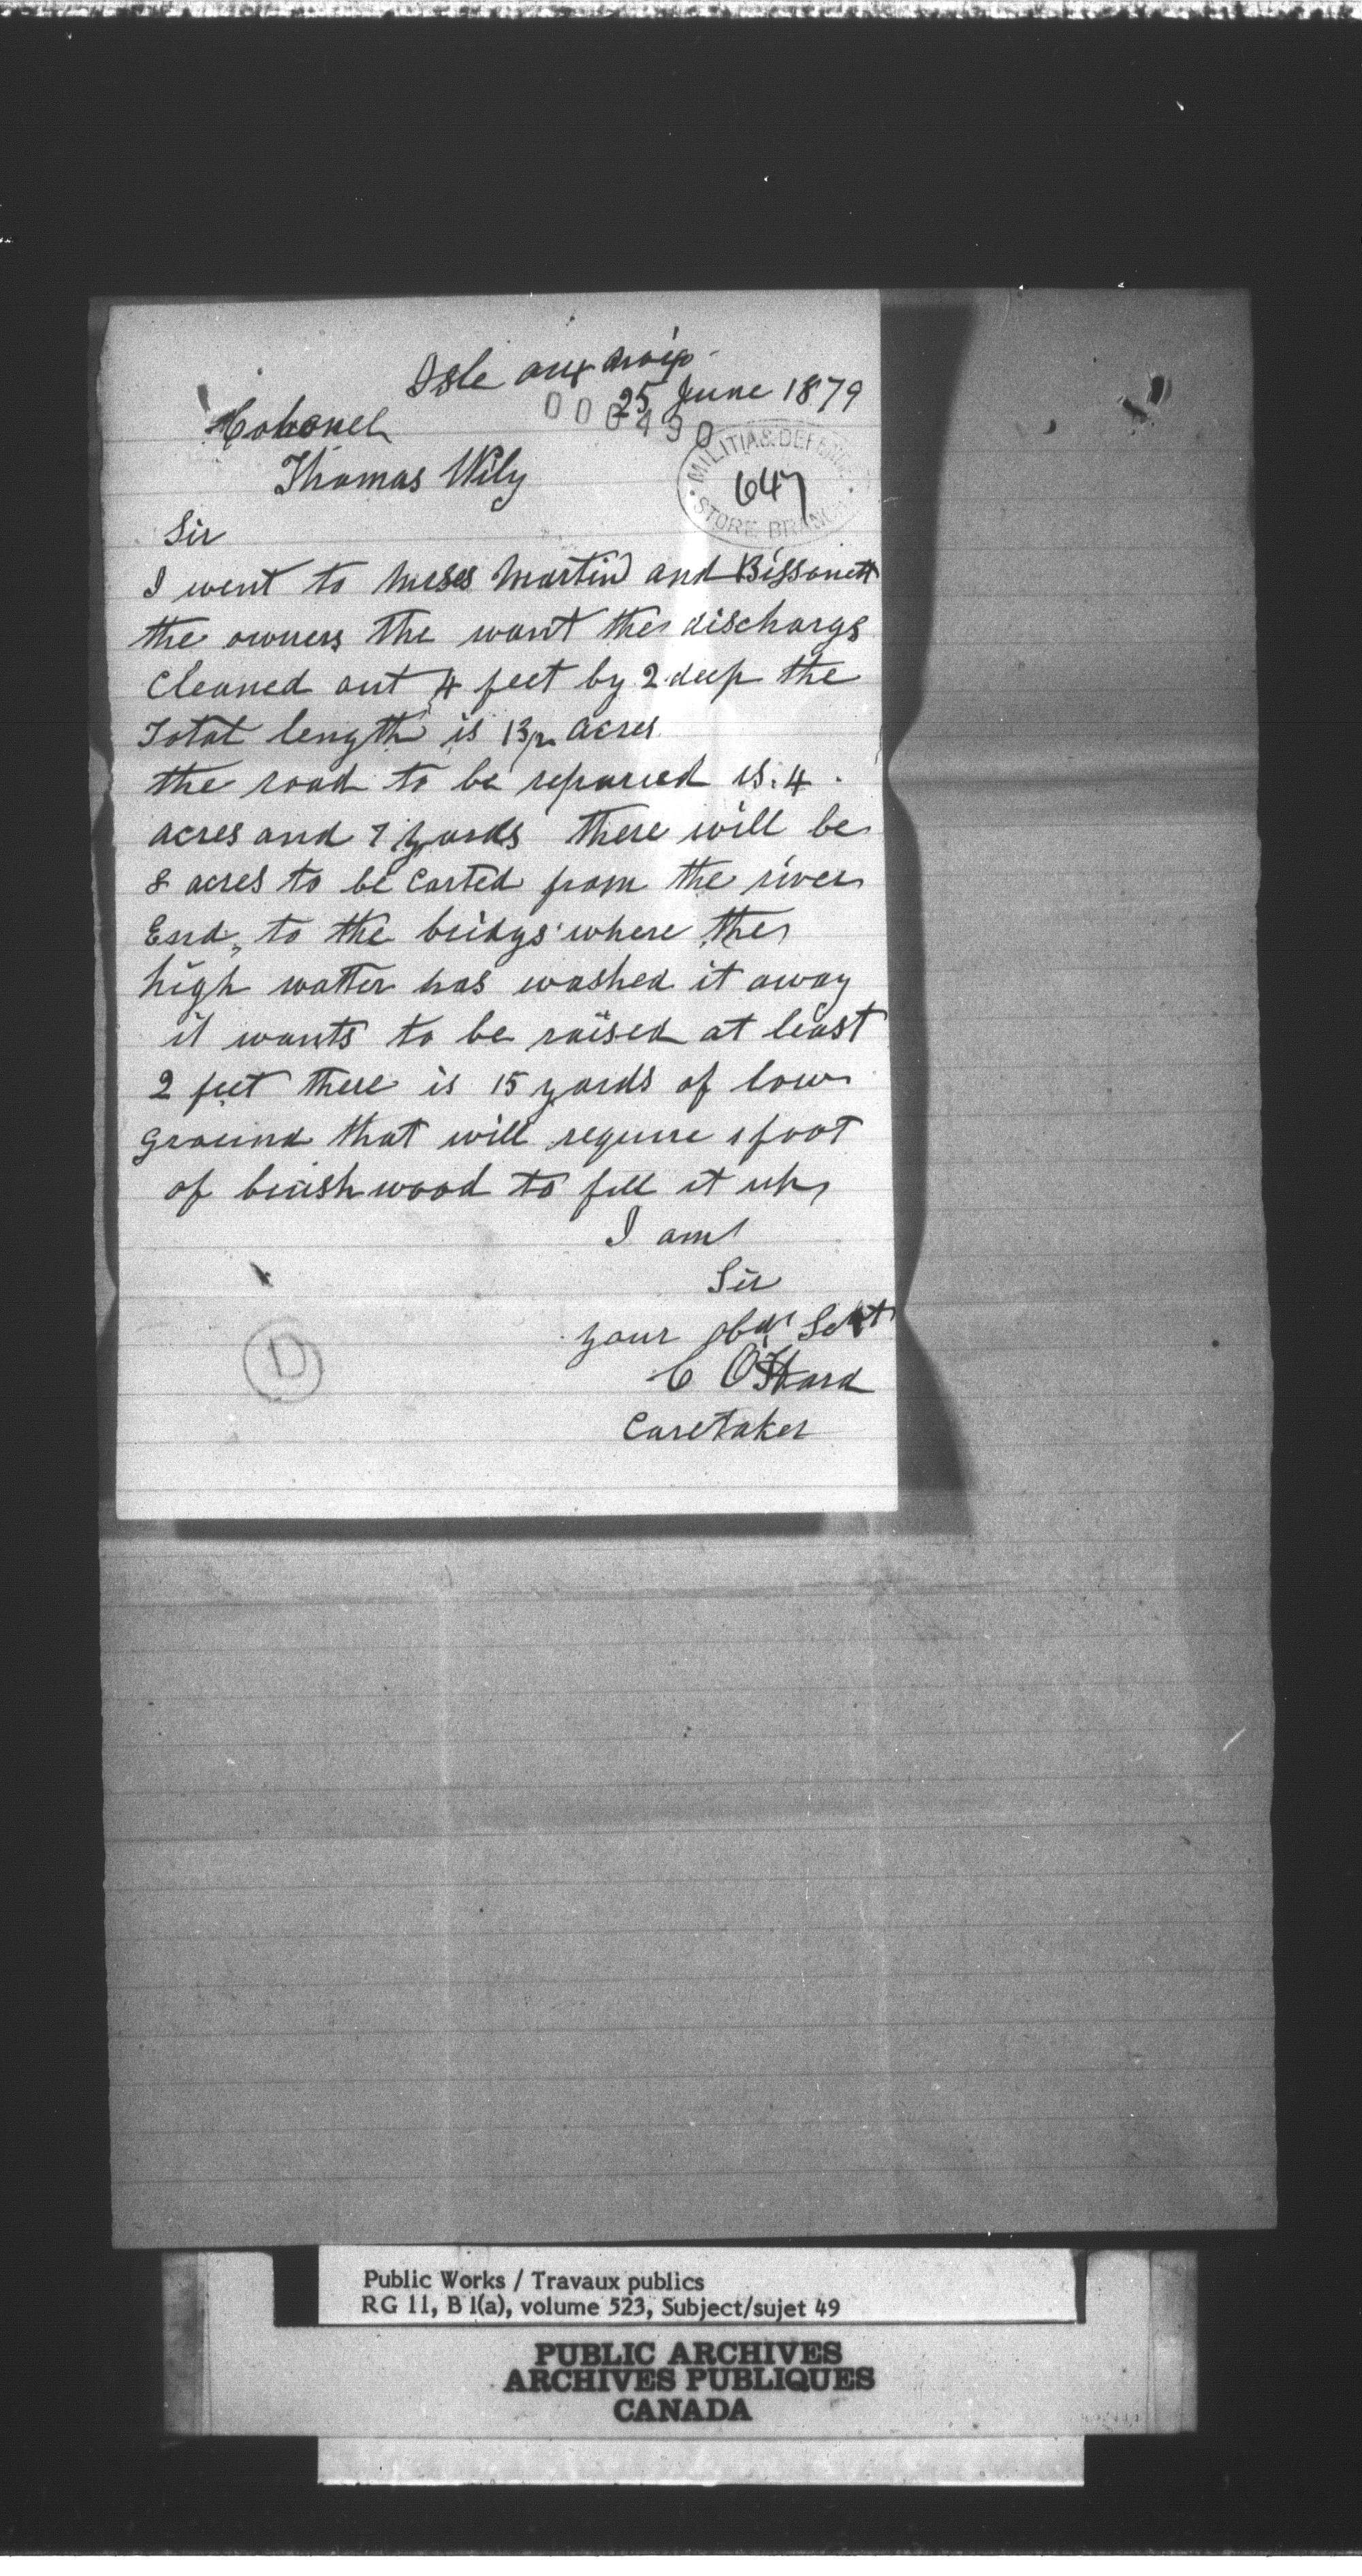 Isle aux noix
25 June 1879
000490
Colonel
Thomas Wily
MILITIA & DEFENCE
647
STORE BRANCH
Sir
I went to Meses Martin and Bissonett
the owners the want the discharge
Cleaned out 4 feet by 2 deep the
Total length is 13½ acres
the road to be repaired is 4
acres and 7 yards there will be
8 acres to be Carted from the river
End, to the bridge where the
high watter has washed it away
it wants to be raised at least
2 feet there is 15 yards of low
ground that will require 1 foot
of brush wood to fill it up
I am
Sir
your obdt Servt
C O'Hara
Caretaker
D
Public Works / Travaux publics
RG 11, B 1(a), volume 523, Subject/sujet 49
PUBLIC ARCHIVES
ARCHIVES PUBLIQUES
CANADA